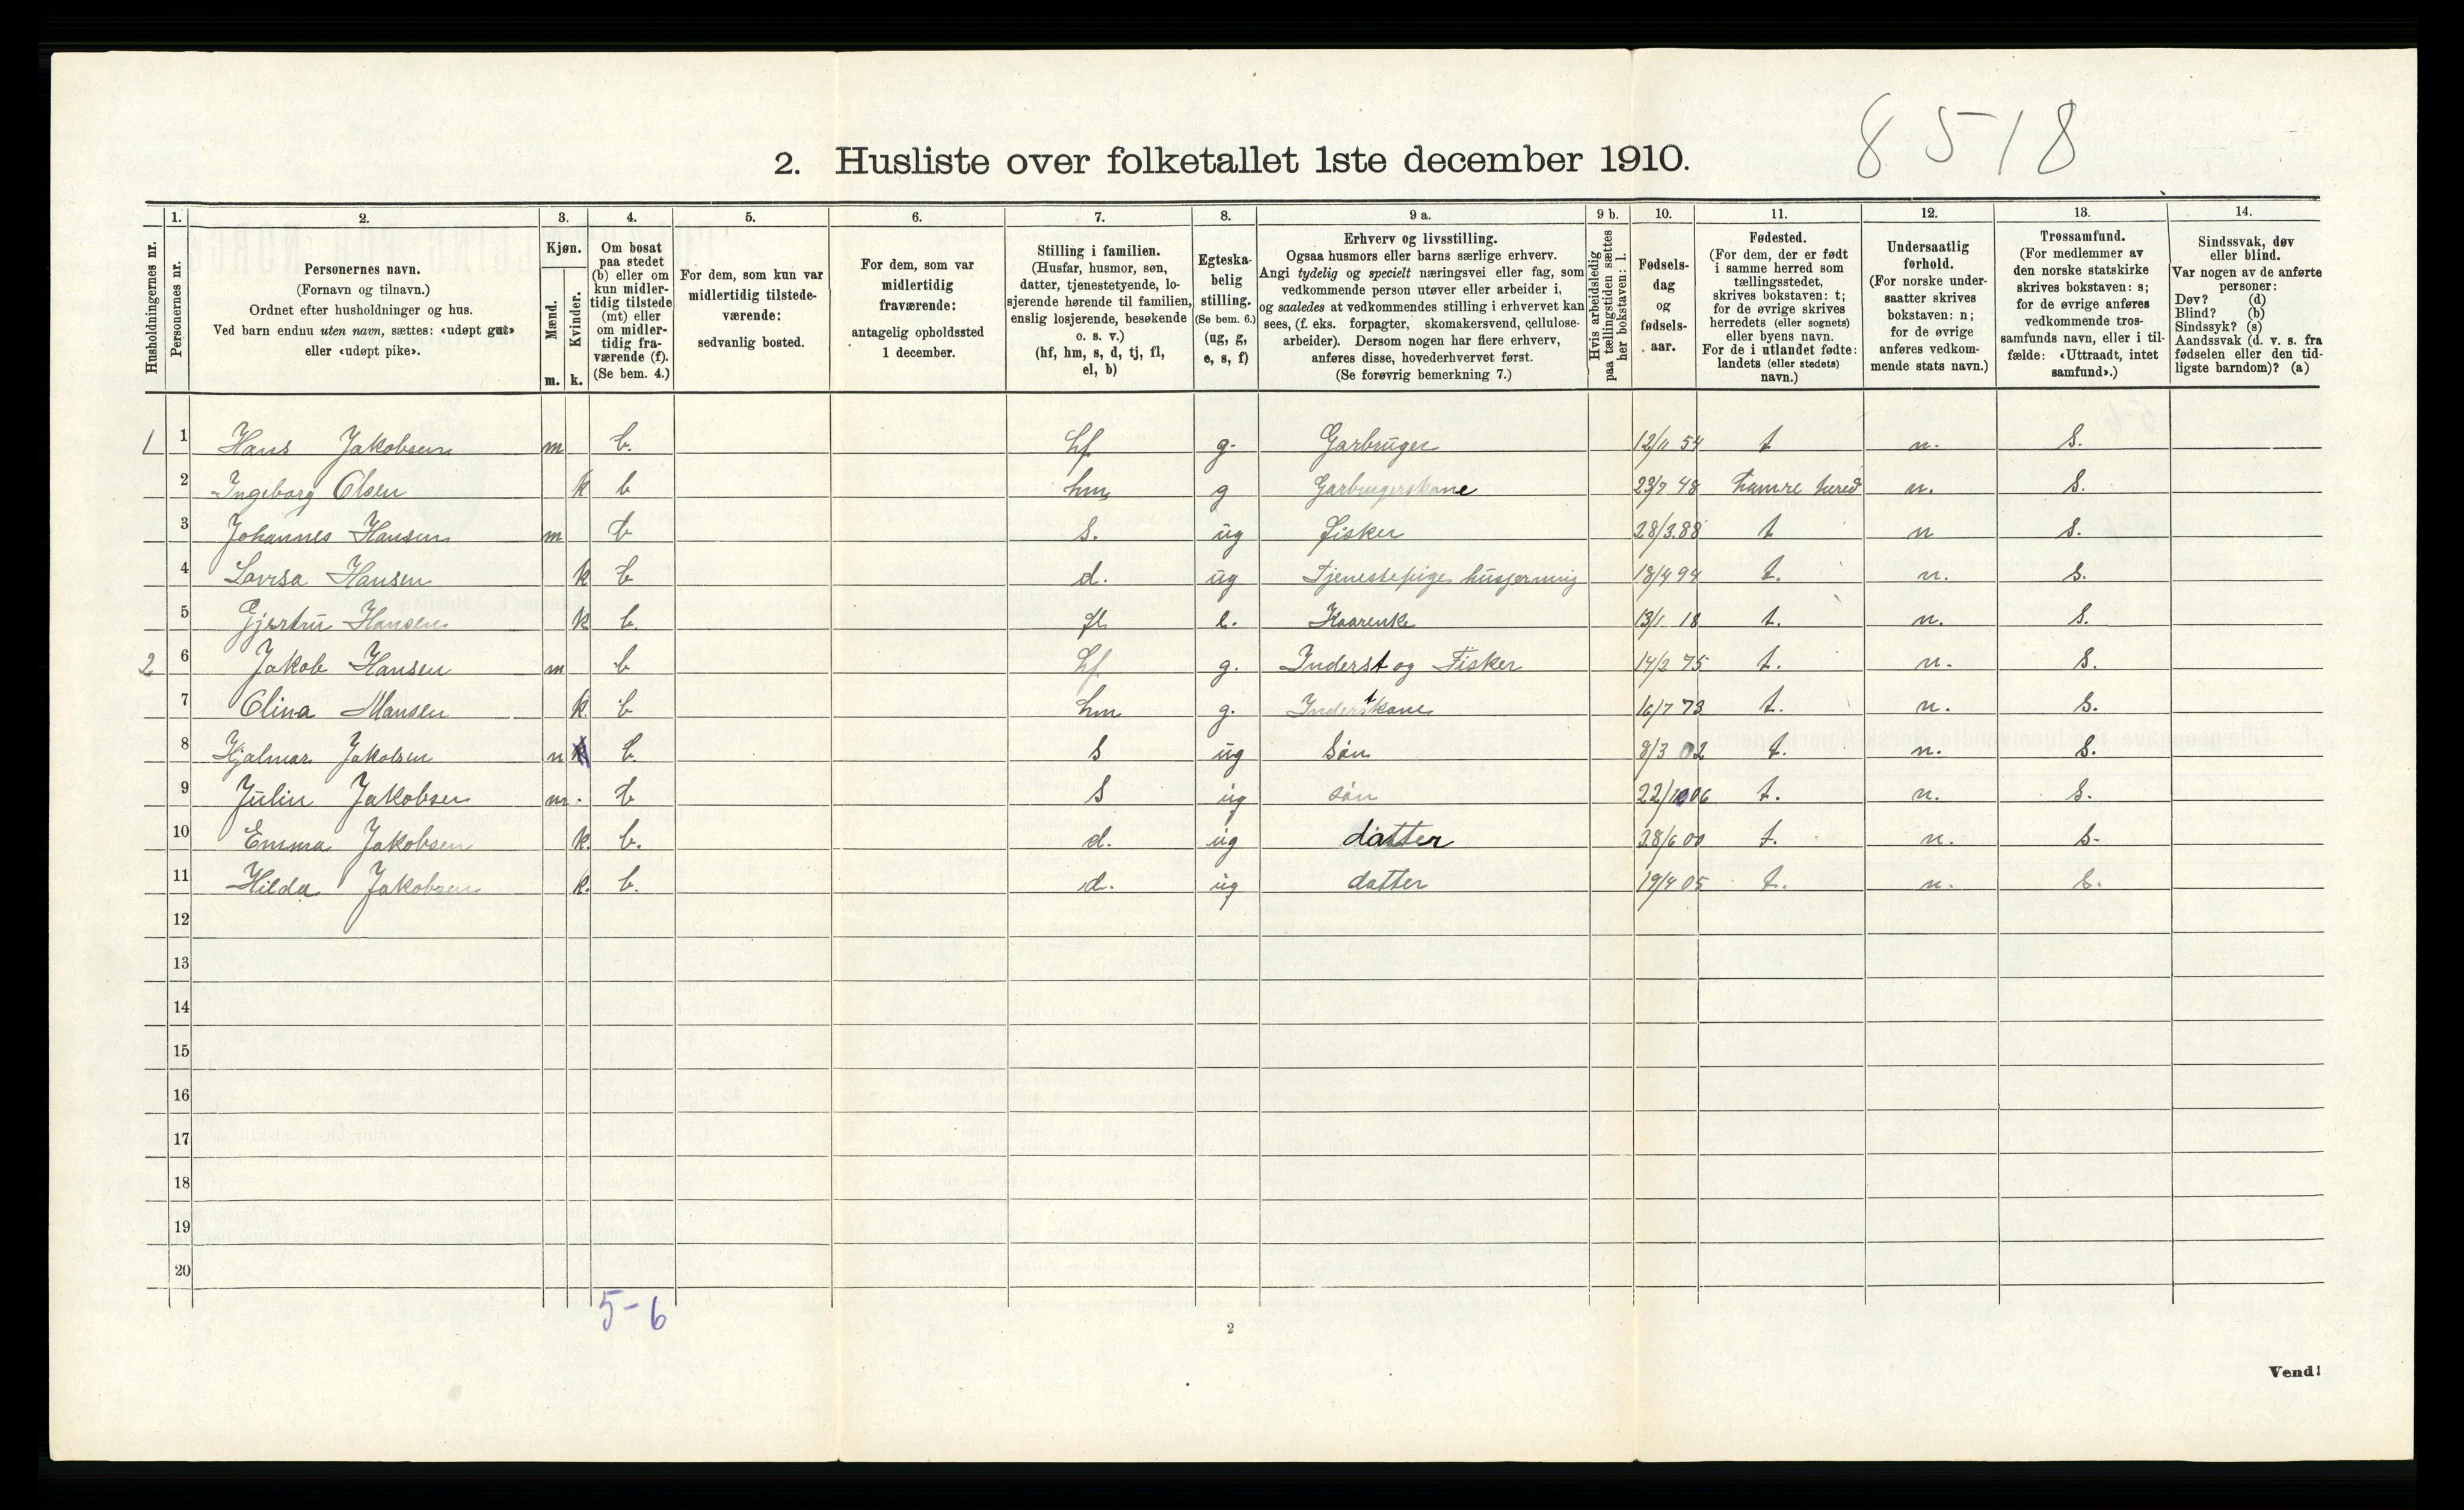 8518
2. Husliste over folketallet 1ste december 1910.
1. 2. 3. 4. 5. 6. 7. 8. 9 a. 9 b. 10. 11. 12. 13. 14.
Husholdningernes nr.
Personernes nr.
Personernes navn.
(Fornavn og tilnavn.)
Ordnet efter husholdninger og hus.
Ved barn endnu uten navn, sættes: «udøpt gut»
eller «udøpt pike».
Kjøn.
Mænd.
Kvinder.
m. k.
Om bosat
paa stedet
(b) eller om
kun midler-
tidig tilstede
(mt) eller
om midler-
tidig fra-
værende (f).
(Se bem. 4.)
For dem, som kun var
midlertidig tilstede-
værende:
sedvanlig bosted.
For dem, som var
midlertidig
fraværende:
antagelig opholdssted
1 december.
Stilling i familien.
(Husfar, husmor, søn,
datter, tjenestetyende, lo-
sjerende hørende til familien,
enslig losjerende, besøkende
o. s. v.)
(hf, hm, s, d, tj, fl,
el, b)
Egteska-
belig
stilling.
(Se bem. 6.)
(ug, g,
e, s, f)
Erhverv og livsstilling.
Ogsaa husmors eller barns særlige erhverv.
Angi tydelig og specielt næringsvei eller fag, som
vedkommende person utøver eller arbeider i,
og saaledes at vedkommendes stilling i erhvervet kan
sees, (f. eks. forpagter, skomakersvend, cellulose-
arbeider). Dersom nogen har flere erhverv,
anføres disse, hovederhvervet først.
(Se forøvrig bemerkning 7.)
Hvis arbeidsledig
paa tællingstiden sættes
her bokstaven: l.
Fødsels-
dag
og
fødsels-
aar.
Fødested.
(For dem, der er født
i samme herred som
tællingsstedet,
skrives bokstaven: t;
for de øvrige skrives
herredets (eller sognets)
eller byens navn.
For de i utlandet fødte:
landets (eller stedets)
navn.)
Undersaatlig
forhold.
(For norske under-
saatter skrives
bokstaven: n;
for de øvrige
anføres vedkom-
mende stats navn.)
Trossamfund.
(For medlemmer av
den norske statskirke
skrives bokstaven: s;
for de øvrige anføres
vedkommende tros-
samfunds navn, eller i til-
fælde: «Uttraadt, intet
samfund».)
Sindssvak, døv
eller blind.
Var nogen av de anførte
personer:
Døv? (d)
Blind? (b)
Sindssyk? (s)
Aandssvak (d. v. s. fra
fødselen eller den tid-
ligste barndom)? (a)
1 1 Hans Jakobsen m b. hf g. Garbruger 12/11 54 t n. S.
2 Ingeborg Olsen k b hm g Garbrugerskone 23/7 48 hamre hered n. S.
3 Johannes Hansen m b S. ug fisker 28/3.88 t n S.
4 Lovisa Hansen k b d. ug Tjenestepige husgerning 18/4 94 t. n. S.
5 Gjertru Hansen k b. fl e. Kaarenke 13/1 18 t. n. S.
2 6 Jakob Hansen m b hf g. Inderst og Fisker 14/2 75 t. n. S.
7 Olina Mansen k. b hm g. Inderstkone 16/7 73 t. n. S.
8 Hjalmar Jakobsen m b. S ug Søn 8/3 02 t. n. S.
9 Julin Jakobsen m. b S ug søn 22/10 06 t. n. S.
10 Emma Jakobsen k. b. d. ug datter 28/6 00 t. n. S.
11 Hilda Jakobsen k. b. d. ug datter 19/4 05 t. n. S.
12
13
14
15
16
17
18
19
20
5-6
2
Vend!